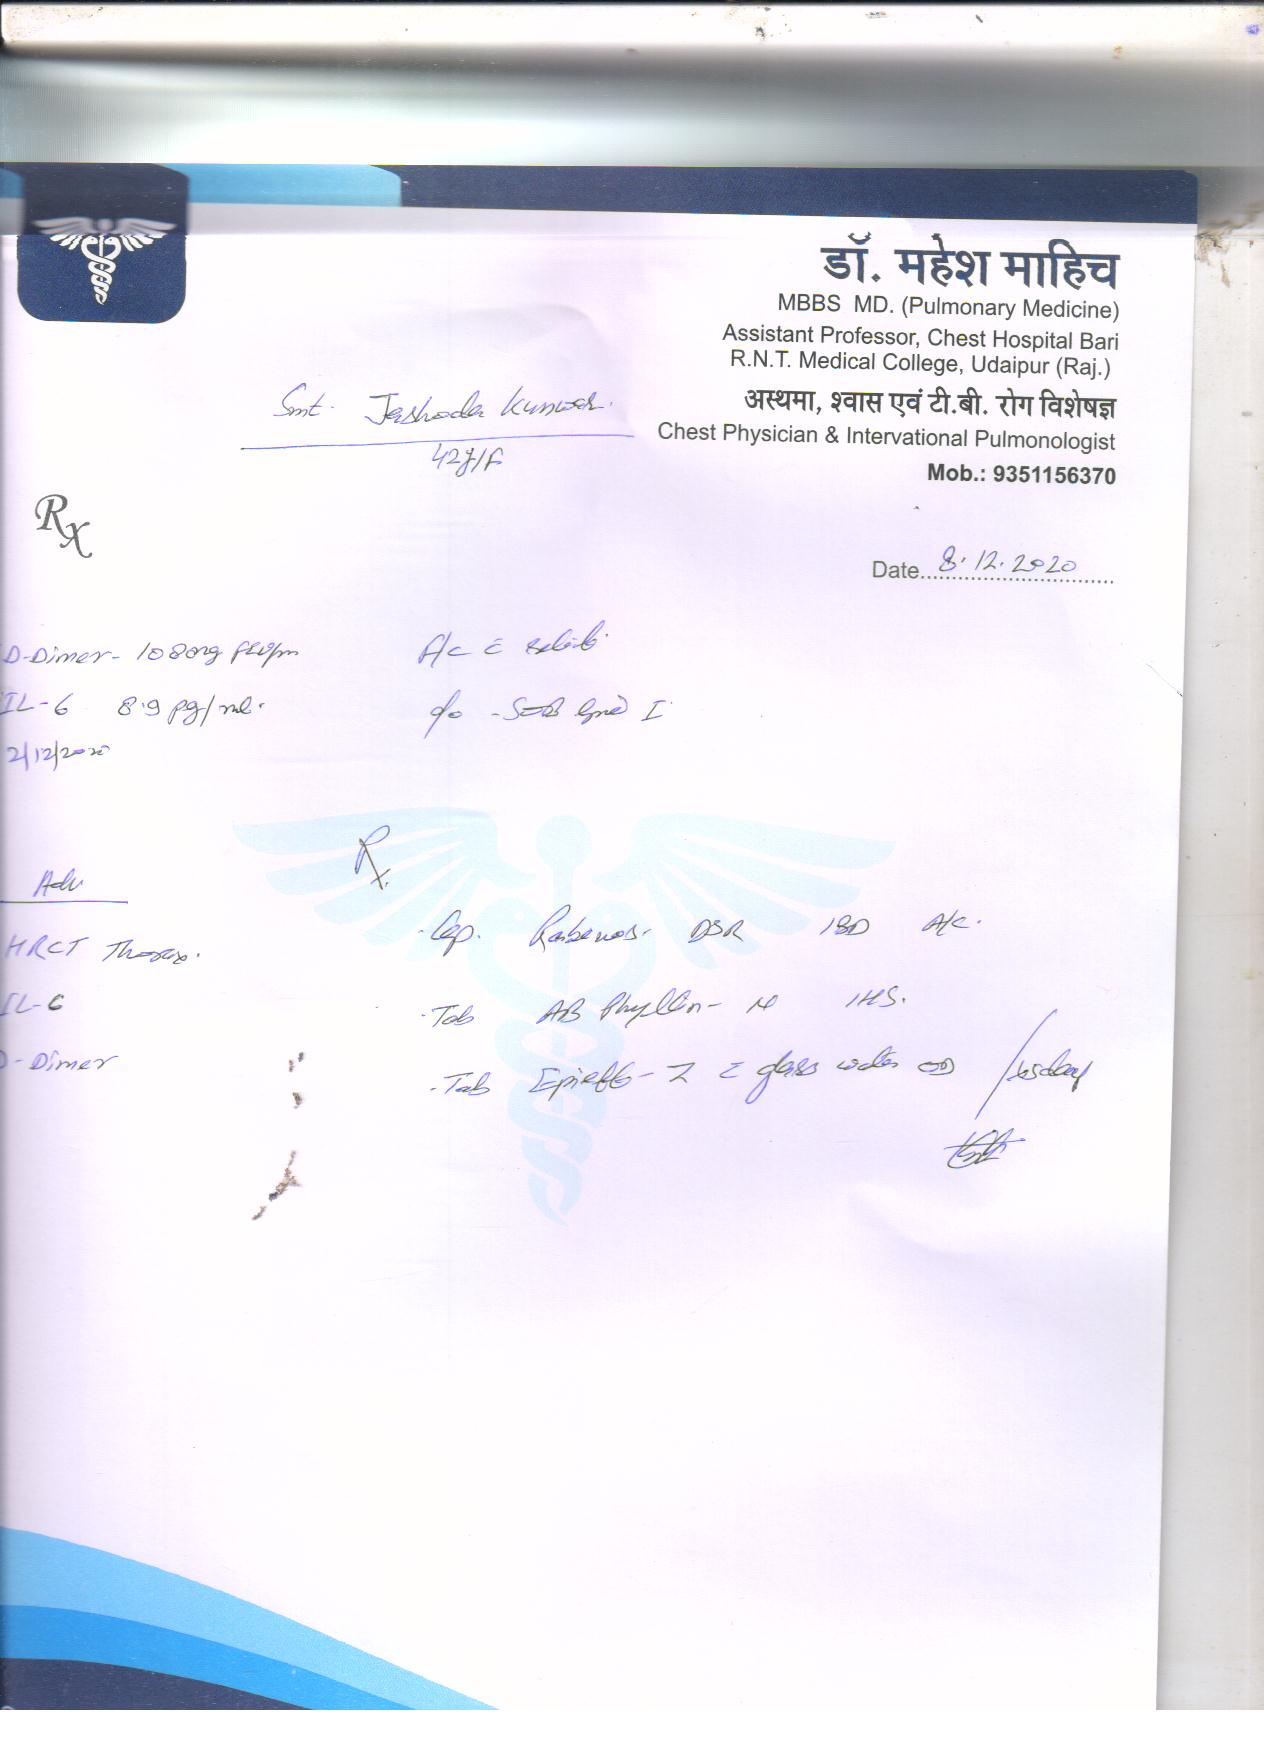 डॉ. महेश माहिच
MBBS MD. (Pulmonary Medicine)
Assistant Professor, Chest Hospital Bari
R.N.T. Medical College, Udaipur (Raj.)
अस्थमा, श्वास एवं टी.बी. रोग विशेषज्ञ
Chest Physician & Intervational Pulmonologist
Mob.: 9351156370
Smt. Jashoda Kunwar.
42y/F
Rx
Date 8.12.2020
D-Dimer- 1080ng
IL-6 8.9 pg/ml.
2/12/2020
A/c
c/o - SOB Grade I
Rx
Adv
HRCT Thorax.
IL-6
D-Dimer
- Cap. DSR 1BD A/c.
- Tab AB Phyllin- N 1HS.
- Tab - Z c glass water OD